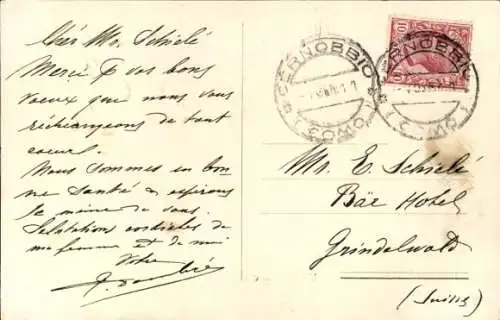 Chér Mr. Schielé
Merci p vos bons
voeux que nous vous
réchangeons de tout
coeur.
Nous sommes en bon
ne santé & espérons
le même de vous.
Salutations cordiales de
ma femme et de moi
Votre
CERNOBBIO
(COMO)
CERNOBBIO
(COMO)
10
10
Mr. E. Schielé
Bär Hotel
Grindelwald
(Suisse)